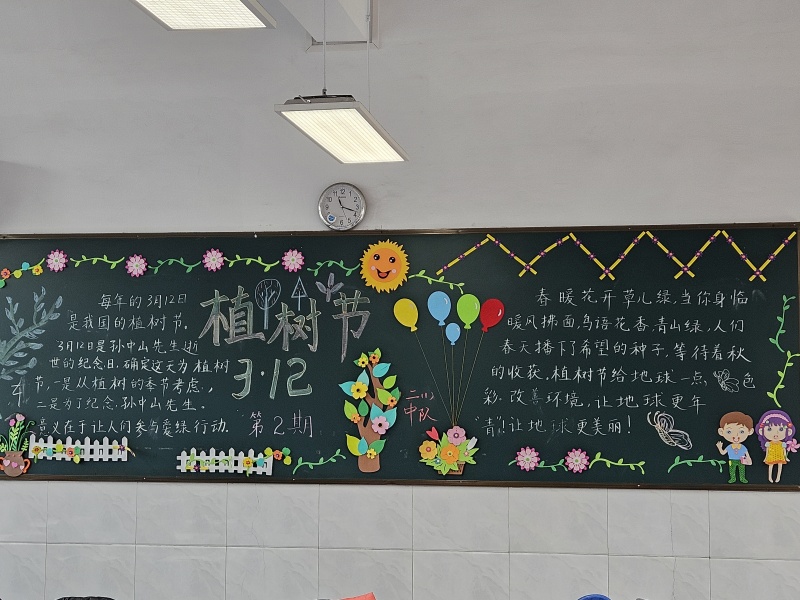 每年的3月12日
是我国的植树节.
3月12日是孙中山先生逝
世的纪念日.确定这天为植树
节,一是从植树的季节考虑.,
二是为了纪念.孙中山先生.
意义在于让人们参与爱绿行动.
植树节
3·12
第2期
二(1)
中队
春暖花开草儿绿,当你身临
暖风拂面,鸟语花香,青山绿,人们
春天播下了希望的种子,等待着秋
的收获.植树节给地球一点色
彩.改善环境,让地球更年
"青"!让地球更美丽!